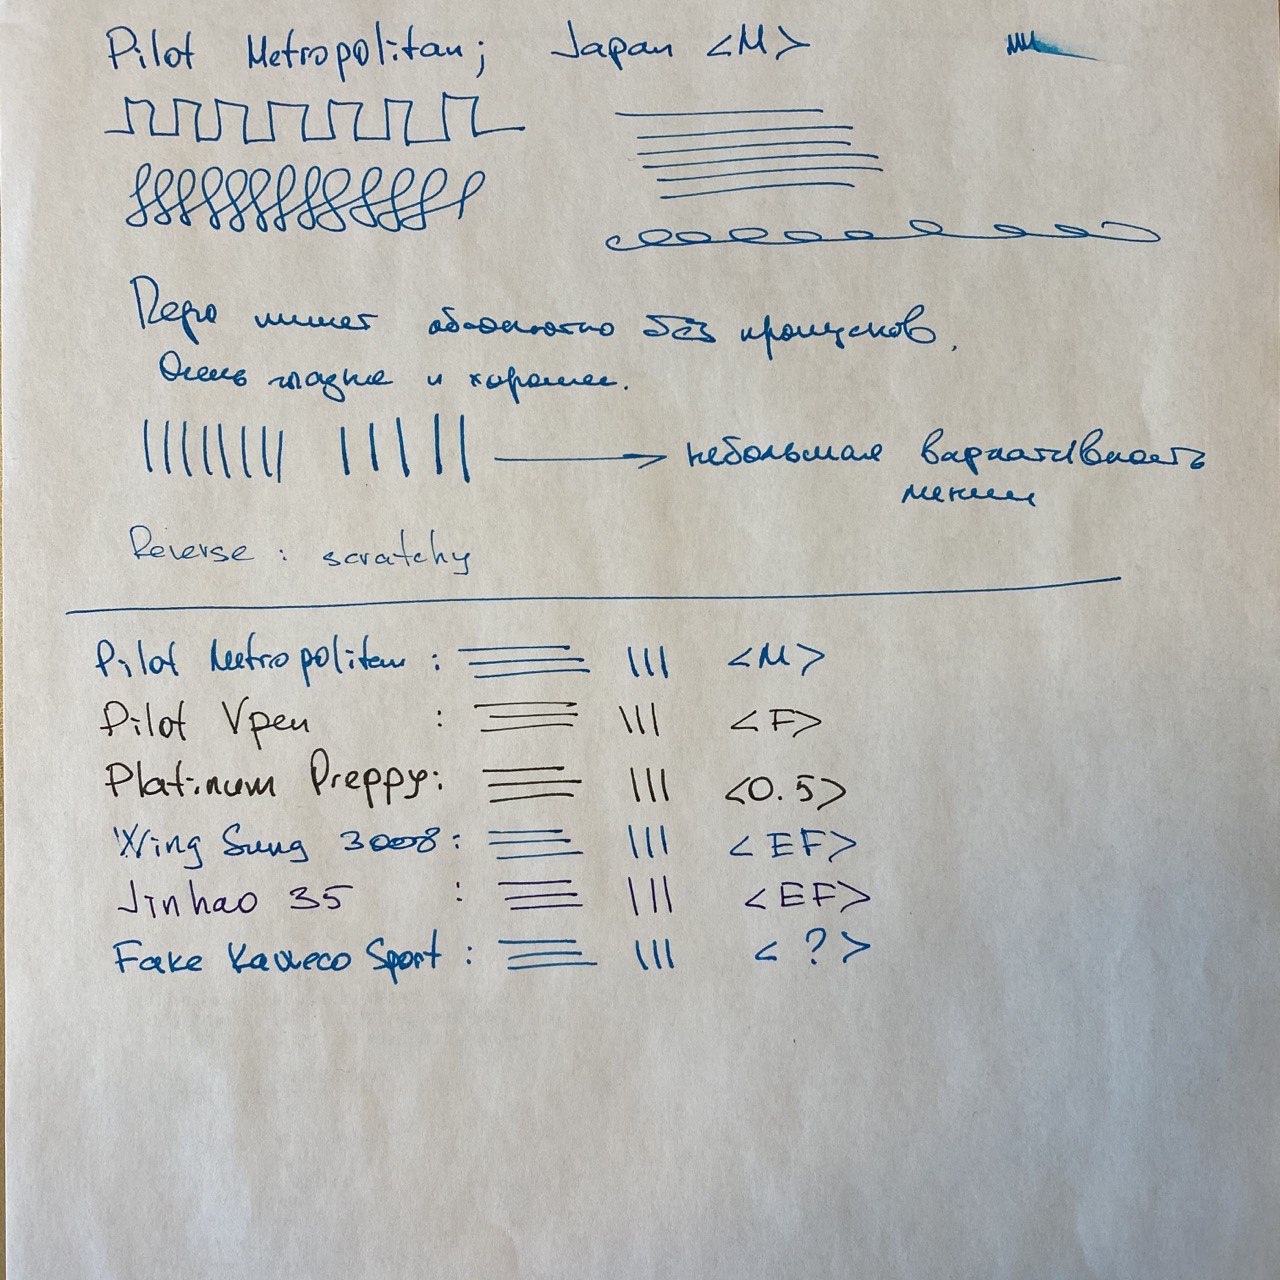 Pilot Metropolitan; Japan <M>
Перо пишет абсолютно без пропусков.
Очень гладкое и хорошее.
небольшая вариативность
линии
Reverse: scratchy
Pilot Metropolitan: <M>
Pilot Vpen : <F>
Platinum Preppy: <0.5>
Wing Sung 3008: <EF>
Jinhao 35 : <EF>
Fake Kaweco Sport: <?>